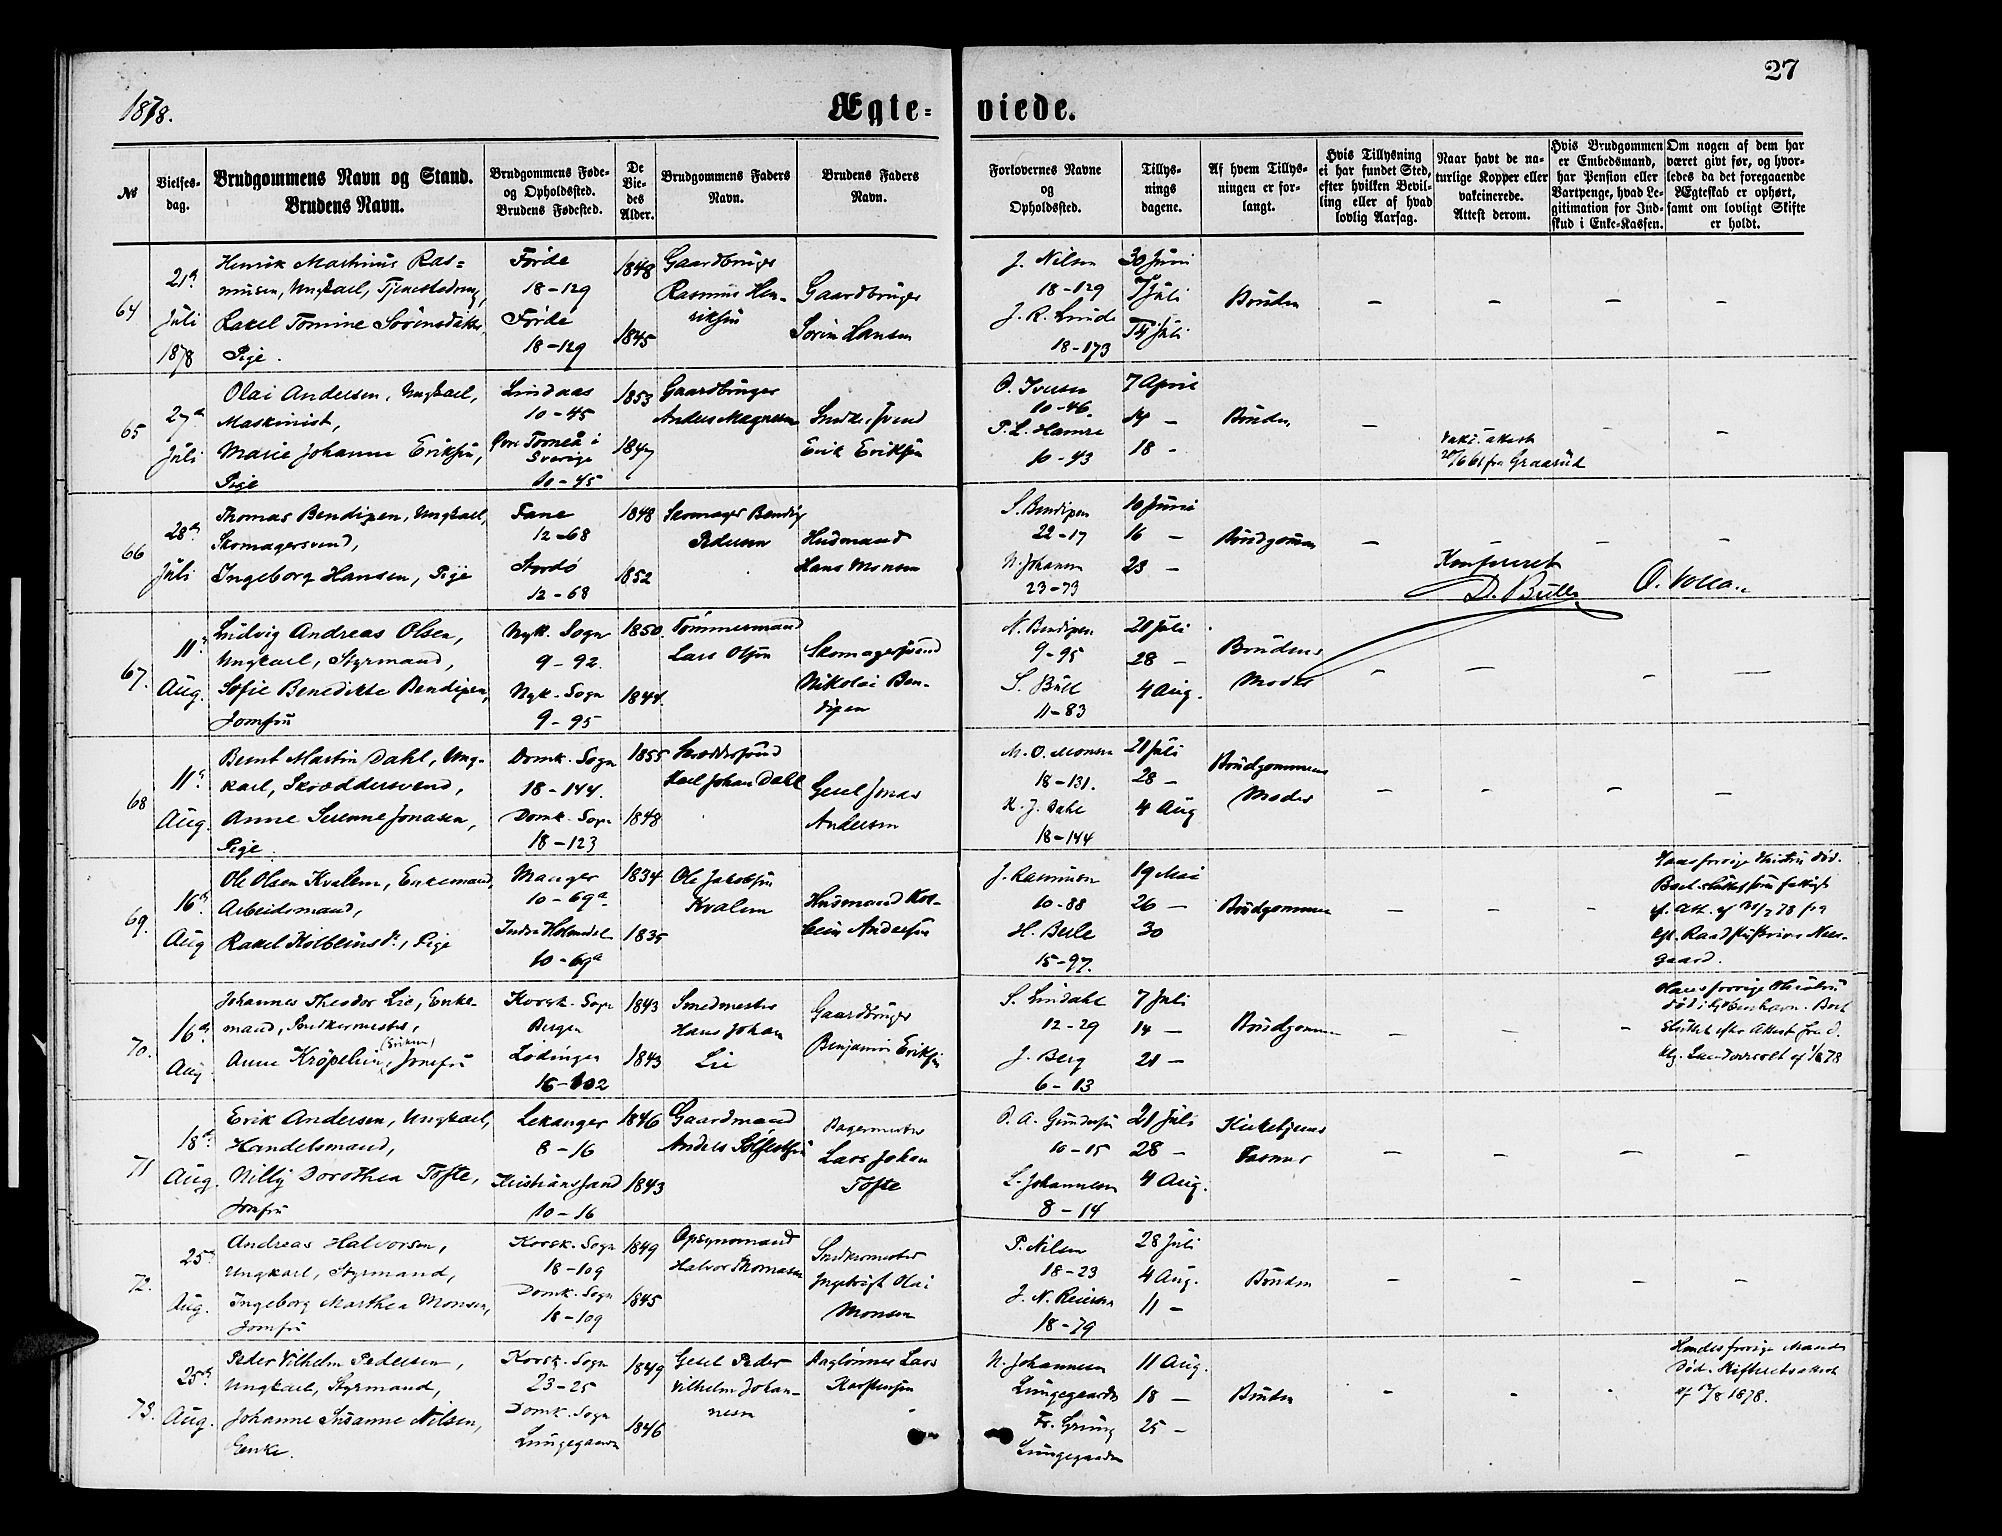 27
1878.
Ægte- viede.
No
Vielses-
dag.
Brudgommens Navn og Stand.
Brudens Navn.
Brudgommens Føde-
og Opholdssted.
Brudens Fødested.
De
Vie-
des
Alder.
Brudgommens Faders
Navn.
Brudens Faders
Navn.
Forlovernes Navne
og
Opholdssted.
Tillys-
nings
dagene.
Af hvem Tillys-
ningen er for-
langt.
Hvis Tillysning
ei har fundet Sted,
efter hvilken Bevil-
ling eller af hvad
lovlig Aarsag.
Naar havt de na-
turlige Kopper eller
vakcinerede.
Attest derom.
Hvis Brudgommen
er Embedsmand,
har Pension eller
Vartpenge, hvad Le-
gitimation for Ind-
skud i Enke-Kassen.
Om nogen af dem har
været givt før, og hvor-
ledes da det foregaaende
Ægteskab er ophørt,
samt om lovligt Skifte
er holdt.
64
21de
Juli
1878
Henrik Martinus Ras-
musen, Ungkarl, Tjenestedreng,
Rakel Tomine Sørensdatter,
Pige.
Førde
18-129
Førde
18-129
1848
1845
Gaardbruger
Rasmus Hen-
riksen
Gaardbruger
Søren Hansen
J. Nilsen
18-129
J. R. Lunde
18-173
30 Juni
7 Juli
14 Juli
Bruden
— — — —
65
27de
Juli
Olai Andersen, Ungkarl,
Maskinist,
Marie Johanne Eriksen,
Pige
Lindaas
10-45
Øvre Torneå i
Sverige
10-45
1853
1847
Gaardbruger
Anders Magnesen
Snedkersvend
Erik Eriksen
O. Iversen
10-46.
P. L. Hamre
10-43
7 April
14 —
18 -
Bruden
—
Vakc. attest
20/6 61 fra Graarud
— —
66
28de
Juli
Thomas Bendixen, Ungkarl,
Skomagersvend,
Ingeborg Hansen, Pige
Fane
12-68
Stordø
12-68
1848
1852
Skomager Bendix
Pedersen
Husmand
Hans Monsen
S. Bendixen
22-17
N. Johansen
23-73
10 Juni
16 —
23 —
Brudgommen
— — —
Konfereret
D. Bull
67.
11te
Aug.
Ludvig Andreas Olsen,
Ungkarl, Styrmand,
Sofie Benedikte Bendixen,
Jomfru
Nyk. Sogn
9-92.
Nyk. Sogn
9-95
1850.
1844.
Tømmermand
Lars Olsen
Skomagersvend
Nikolai Ben-
dixen
N. Bendixen
9-95
S. Bull
11-83
21 Juli
28 —
4 Aug.
Brudens
Moder
— — — —
68
11te
Aug.
Bernt Martin Dahl, Ung-
karl, Skræddersvend,
Anne Serenne Jonasen,
Pige.
Domk. Sogn
18-144.
Domk. Sogn
18-123
1855
1848
Skræddersvend
Karl Johan Dahl
Gesel Jonas
Andersen
M. O. Monsen
18-131.
K. J. Dahl
18-144
21 Juli
28 —
4 Aug
Brudgommens
Moder
— — — —
69.
16de
Aug
Ole Olsen Kvalem, Enkemand,
Arbeidsmand,
Rakel Kolbeinsd., Pige
Manger
10-69a
Indre Holmedal
10-69a
1834
1835
Ole Jakobsen
Kvalem
Husmand Kol-
bein Andersen
J. Rasmusen
10-88
H. Berle
15-97.
19 Mai
26 —
30
Brudgommen
— — —
Hans forrige Hustru død.
gaard.
70.
16de
Aug
Johannes Theodor Lie, Enke-
mand, Snedkermester,
(Eriksen)
Anne Krøpelin, Jomfru
Korsk. Sogn
Bergen
Lødingen
16-102
1843
1843
Smedmester
Hans Johan
Lie
Gaardbruger
Benjamin Eriksen
S. Lindahl
12-29
J. Berg
6-13
7 Juli
14 —
21 —
Brudgommen
— — —
Hans forrige Hustru
død i Kjøbenhavn. Boet
sluttet efter Attest fra d.
71
18de
Aug.
Erik Andersen, Ungkarl,
Handelsmand,
Nilly Dorothea Tofte,
Jomfru
Lekanger
8-16
Kristianssand
10-16
1846
1843
Gaardmand
Anders Sølfestsen
Bagermester
Lars Johan
Tofte
O. A. Gundersen
10-15
L. Johannesen
8-14
21 Juli
28 —
4 Aug.
— — — —
72.
25de
Aug.
Andreas Halvorsen,
Ungkarl, Styrmand,
Ingeborg Marthea Monsen,
Jomfru
Korsk. Sogn
18-109
Domk. Sogn
18-109
1849
1845
Opsynsmand
Halvor Thomasen
Snedkermester
Ingebrigt Olai
Monsen
P. Nilsen
18-23
J. N. Reiersen
18-79
28 Juli
4 Aug.
11 —
Bruden
— — — —
73.
25de
Aug.
Peder Vilhelm Pedersen,
Ungkarl, Styrmand,
Johanne Susanne Nilsen,
Enke.
Korsk. Sogn
23-25
Domk. Sogn
Lungegaarden
1849
1846
Gesel Peder
Vilhelm Johan-
nesen
Daglønner Lars
Karstensen
N. Johannesen
Lungegaarden
Fr. Grung
Lungegaarden
11 Aug.
18 —
25 —
Bruden
- - -
Hendes forrige Mand
død. Skifteretsattest
1878.